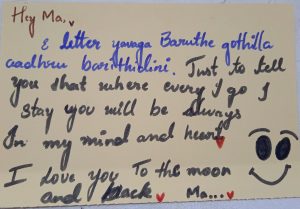 Hey Ma..
E letter yavaga Baruthe gothilla
aadhru barithidini. Just to tell
you that where every I go I
stay you will be always
In my mind and heart
I love you To the moon
and back Ma...